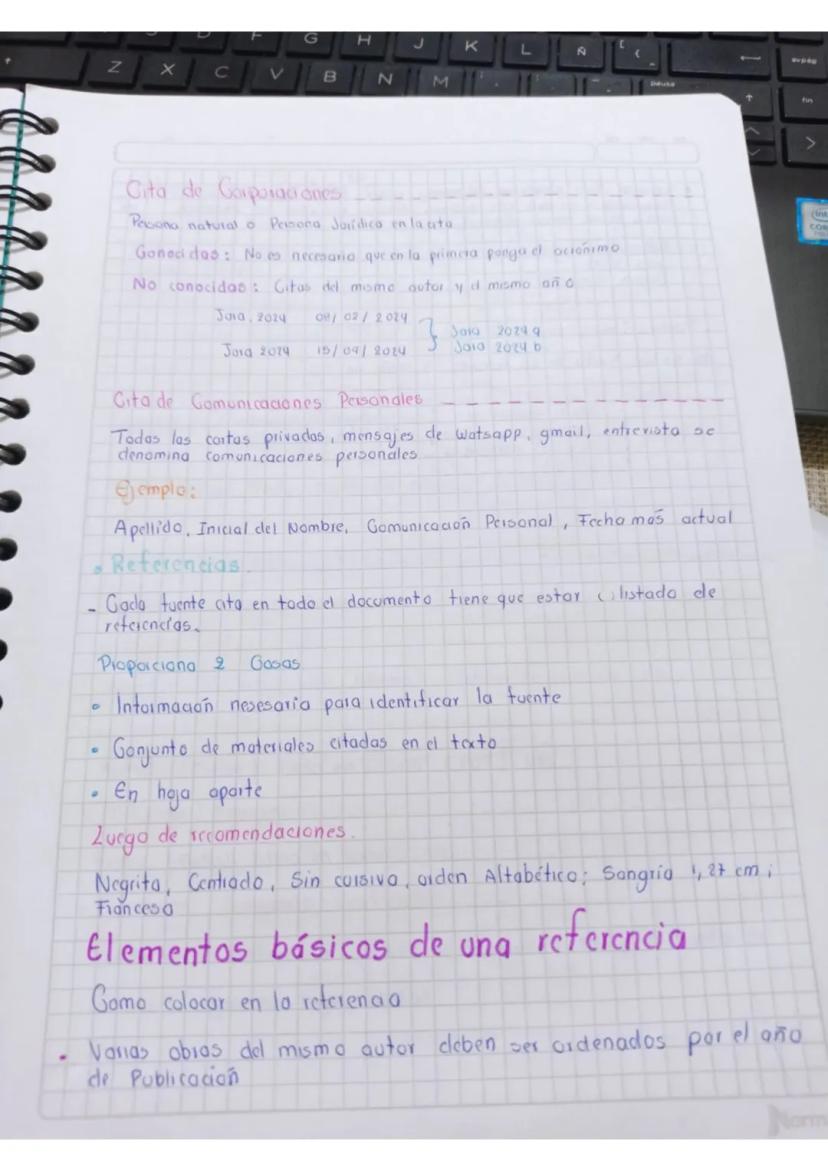 G H J K L Ñ
Z X C V B N M
Cita de Corporaciones
Persona natural o Persona Jurídica en la cita
Conocidas: No es necesario que en la primera ponga el acrónimo
No conocidas: Citas del mismo autor y el mismo año
Jara, 2024 04/02/2024
Jara 2024 a
Jara 2024 15/09/2024
Jara 2024 b
Cita de Comunicaciones Personales
Todas las cartas privadas, mensajes de Watsapp, gmail, entrevista se
denomina comunicaciones personales
Ejemplo:
Apellido, Inicial del Nombre, Comunicación Personal, Fecha más actual
• Referencias.
- Cada fuente cita en todo el documento tiene que estar listado de
referencias.
Proporciona 2 Cosas
• Información nesesaria para identificar la fuente
• Conjunto de materiales citadas en el texto
• En hoja aparte
Luego de recomendaciones.
Negrita, Centrado, Sin cursiva, orden Alfabético; Sangría 1,27 cm;
Francesa
Elementos básicos de una referencia
Como colocar en la referencia
• Varias obras del mismo autor deben ser ordenados por el año
de Publicación
Norm